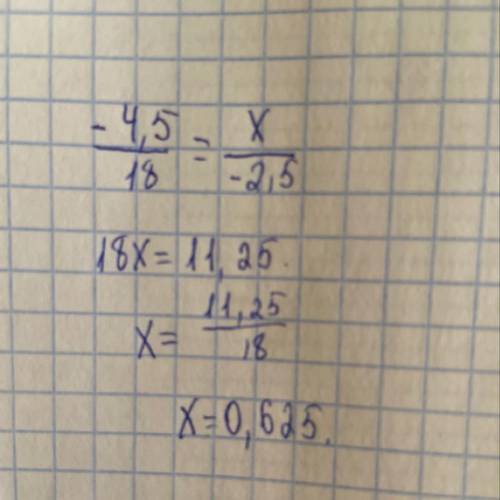 -4,5/18 = x/-2,5
18x = 11,25.
x = 11,25/18
x = 0,625.